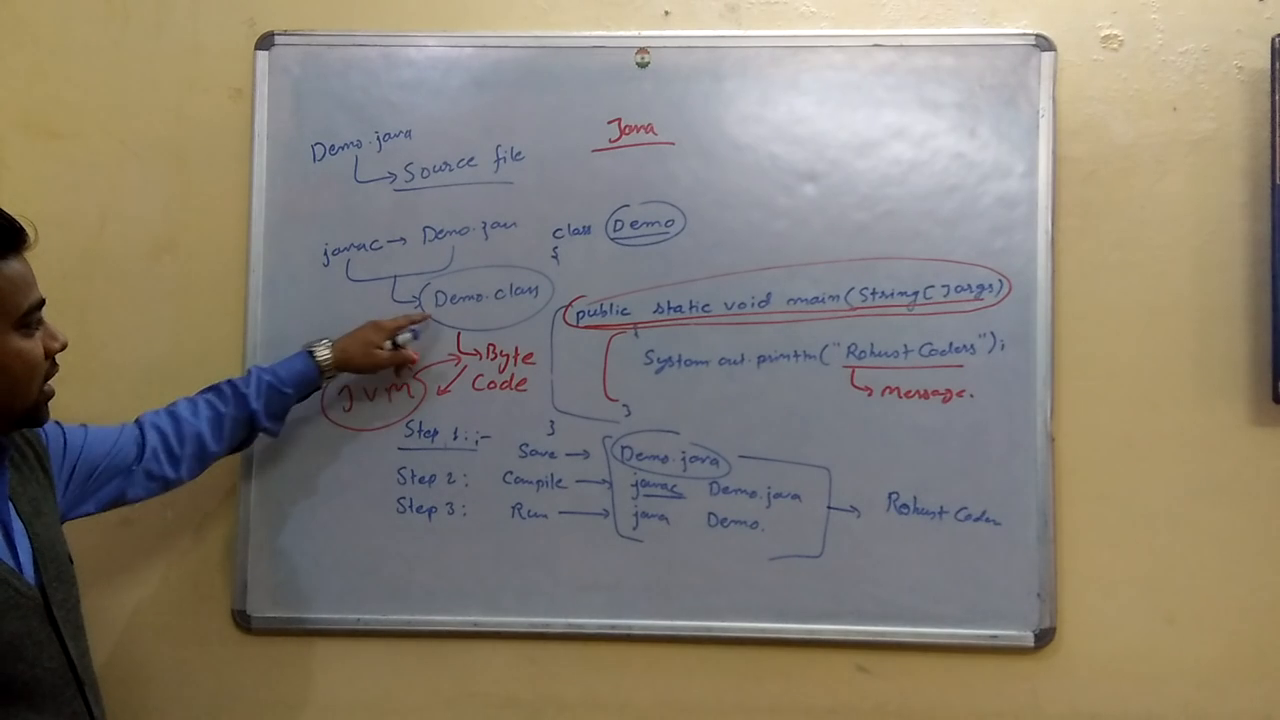 Java
Demo.java
Source file
javac → Demo.java
Demo.class
Byte
Code
JVM
class Demo
{
public static void main(String[]args)
{
System.out.println("Robust Coders");
message.
}
}
Step 1:- Save → Demo.java
Step 2: Compile → javac Demo.java
Step 3: Run → java Demo.
→ Robust Coder